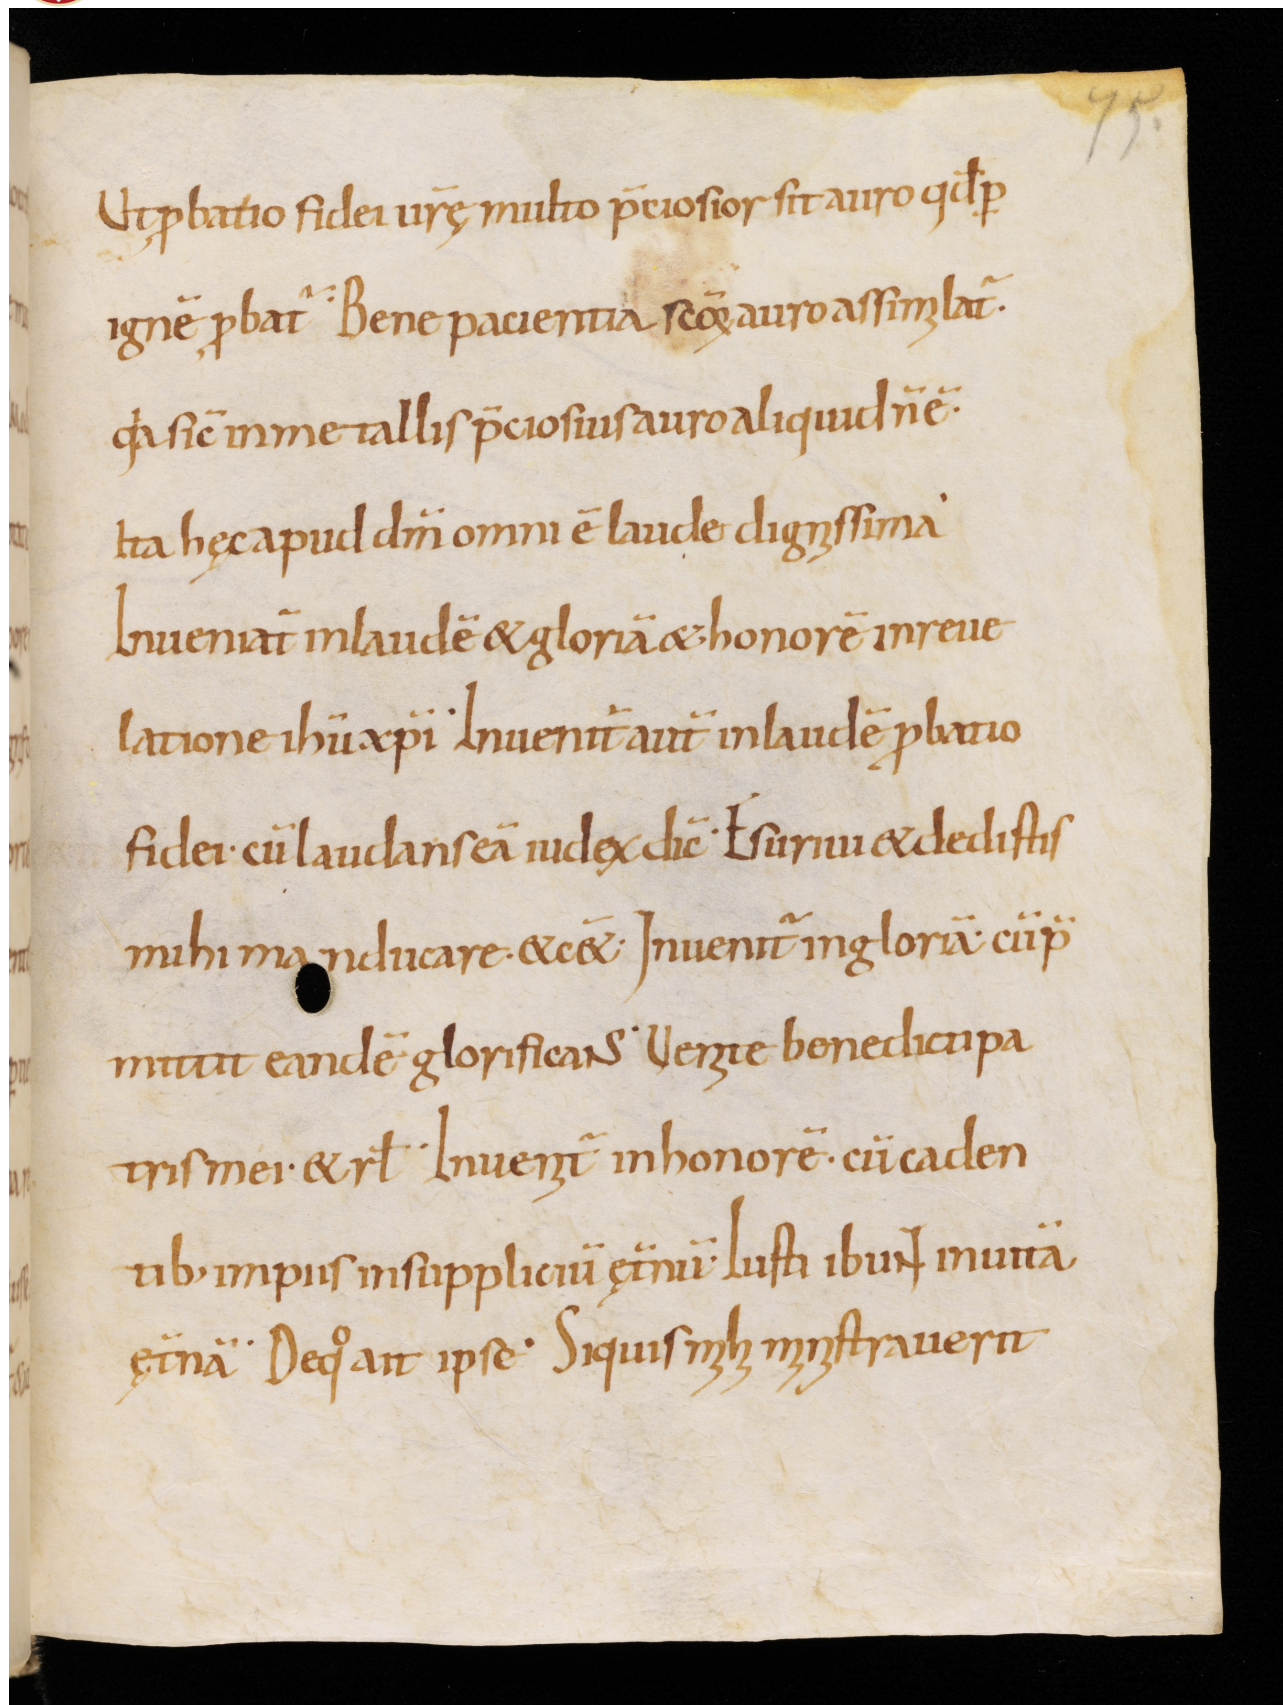 75.
Ut ꝓbatio fidei ur̃ę multo p̄ciosior sit auro qđ ꝑ
ignē ꝓbat̃ Bene pacientia scōꝝ auro assimlat̃.
qꝛ sic̄ in metallis p̄ciosius auro aliquid n̄ ē.
Ita hęc apud dm̄ omni ē laude dignissima
Inueniat̃ in laudē & gloriā & honorē in reue
latione ihū xp̄i Inuenit̃ aut̄ in laudē ꝓbatio
fidei. cū laudans eā iudex dic̄ Esuriui & dedistis
mihi manducare. & cę& Inuenit̃ in gloriā cū p̄
mittit eandē glorificans Uenite benedicti pa
tris mei. & rł Inuenit̃ in honorē. cū caden
tib; impiis in suppliciū ęt̄nū Iusti ibunt in uitā
ęt̄nā De qͦ ait ipse Siquis mihi ministrauerit